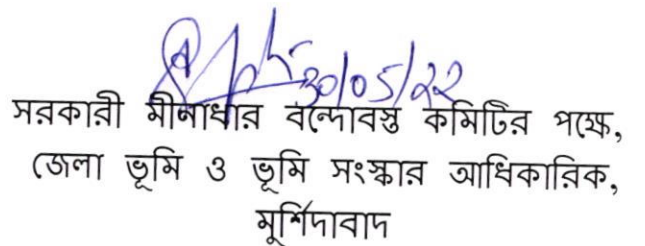 30/05/22
সরকারী মীনাধার বন্দোবস্ত কমিটির পক্ষে,
জেলা ভূমি ও ভূমি সংস্কার আধিকারিক,
মুর্শিদাবাদ